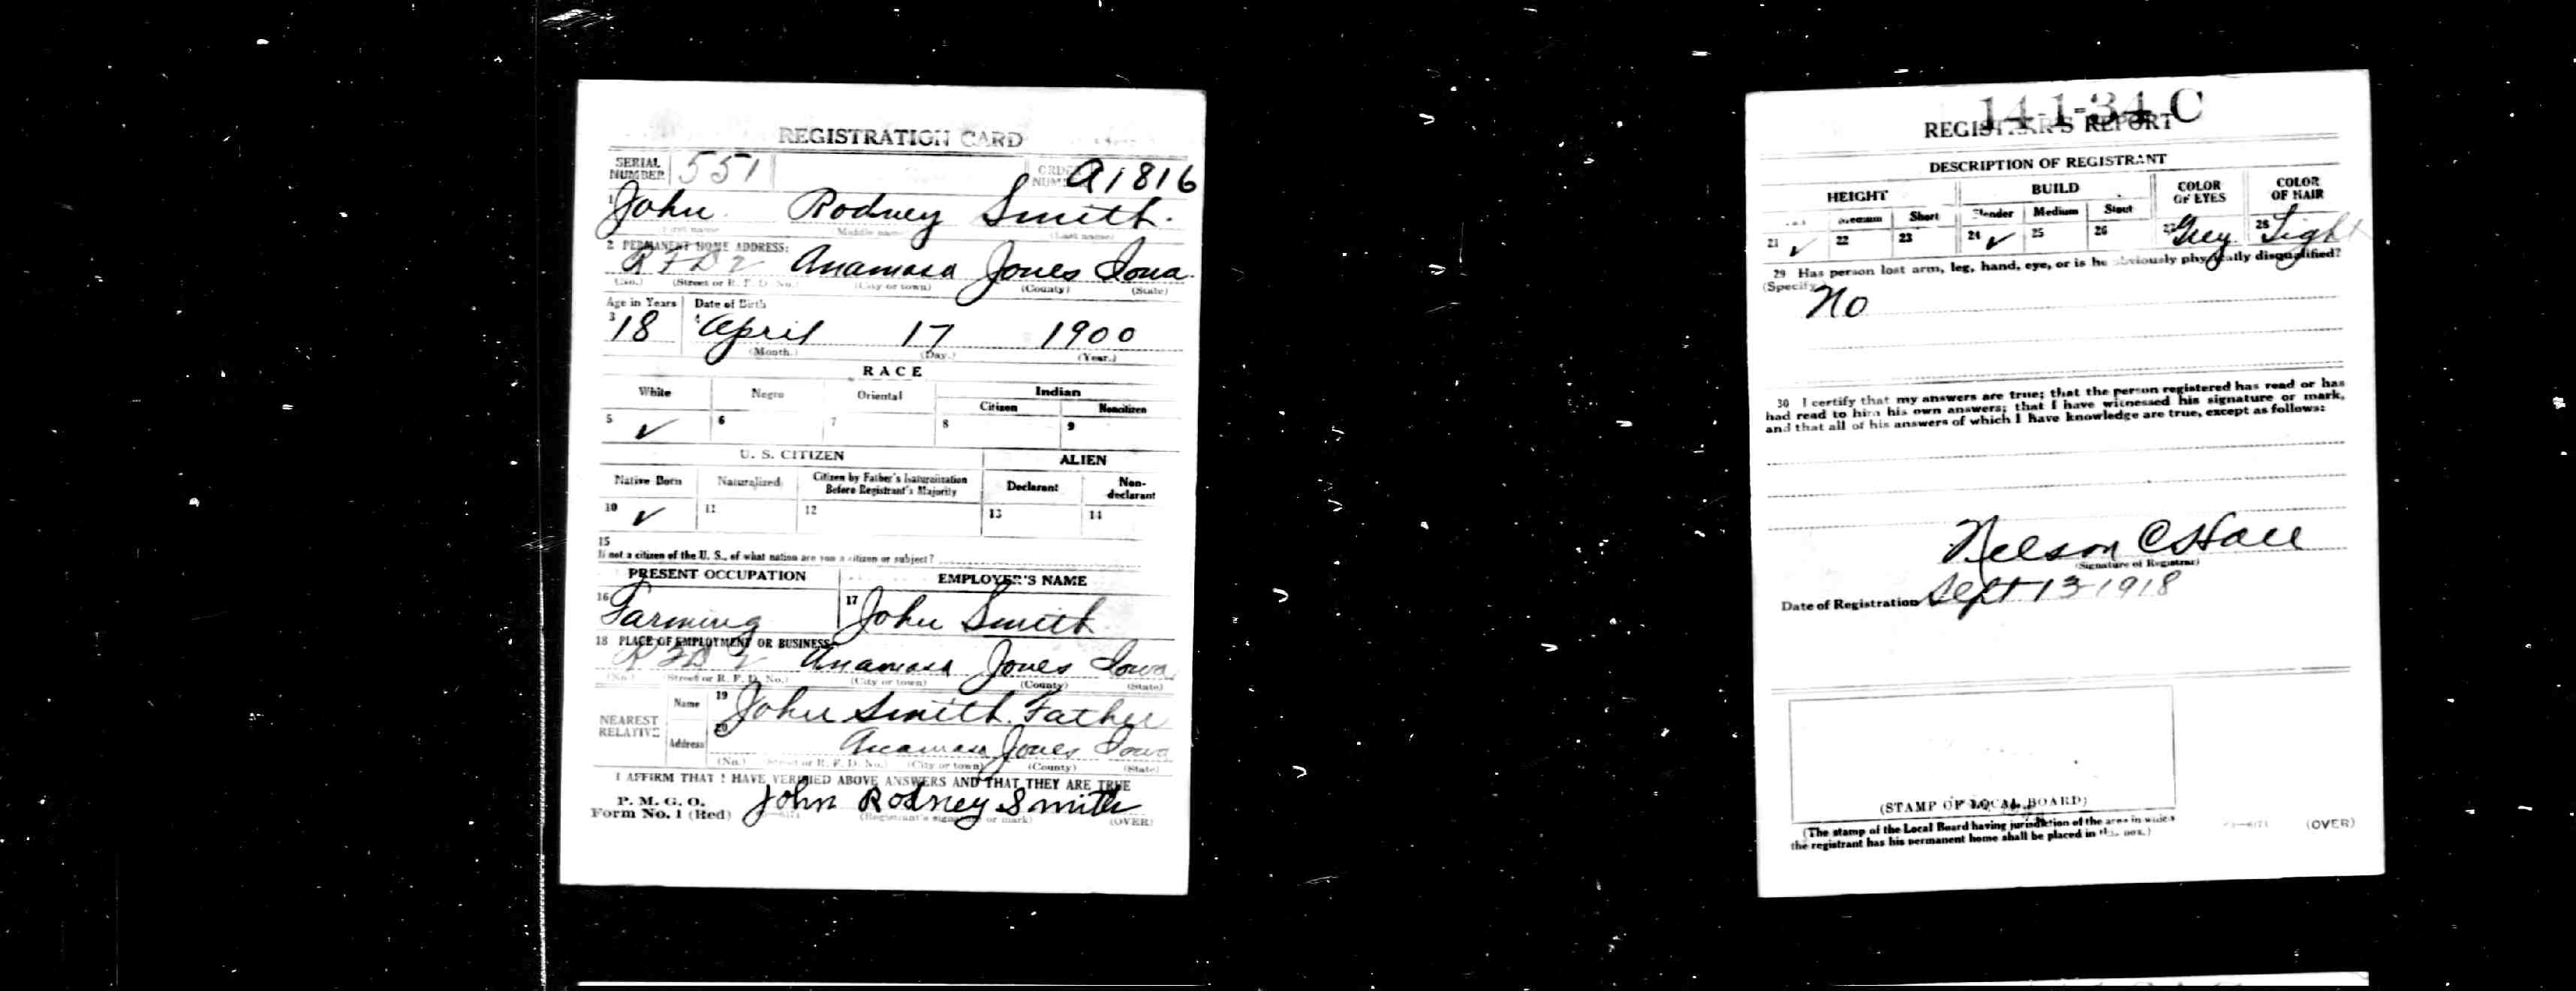 REGISTRATION CARD
SERIAL NUMBER 551 ORDER NUMBER A1816
1 John Rodney Smith.
(First name) (Middle name) (Last name)
2 PERMANENT HOME ADDRESS:
R F D 2 Anamosa Jones Iowa.
(No.) (Street or R. F. D. No.) (City or town) (County) (State)
Age in Years Date of Birth
3 18 4 April 17 1900
(Month.) (Day.) (Year.)
RACE
White Negro Oriental Indian
Citizen Noncitizen
5 ✓ 6 7 8 9
U. S. CITIZEN ALIEN
Native Born Naturalized Citizen by Father's Naturalization Before Registrant's Majority Declarant Non-declarant
10 ✓ 11 12 13 14
15
If not a citizen of the U. S., of what nation are you a citizen or subject?
PRESENT OCCUPATION EMPLOYER'S NAME
16 Farming 17 John Smith
18 PLACE OF EMPLOYMENT OR BUSINESS:
R F D 2 Anamosa Jones Iowa
(No.) (Street or R. F. D. No.) (City or town) (County) (State)
NEAREST RELATIVE Name 19 John Smith. Father
Address 20 Anamosa Jones Iowa
(No.) (Street or R. F. D. No.) (City or town) (County) (State)
I AFFIRM THAT I HAVE VERIFIED ABOVE ANSWERS AND THAT THEY ARE TRUE
P. M. G. O.
Form No. 1 (Red) John Rodney Smith
(Registrant's signature or mark) (OVER)
14-1-34 C
REGISTRAR'S REPORT
DESCRIPTION OF REGISTRANT
HEIGHT BUILD COLOR OF EYES COLOR OF HAIR
Medium Short Slender Medium Stout
21 ✓ 22 23 24 ✓ 25 26 27 Grey 28 Light
29 Has person lost arm, leg, hand, eye, or is he obviously physically disqualified?
(Specify.)
No
30 I certify that my answers are true; that the person registered has read or has
had read to him his own answers; that I have witnessed his signature or mark,
and that all of his answers of which I have knowledge are true, except as follows:
Nelson C Hall
(Signature of Registrar)
Date of Registration Sept 13 1918
(STAMP OF LOCAL BOARD)
(The stamp of the Local Board having jurisdiction of the area in which
the registrant has his permanent home shall be placed in this box.)
(OVER)